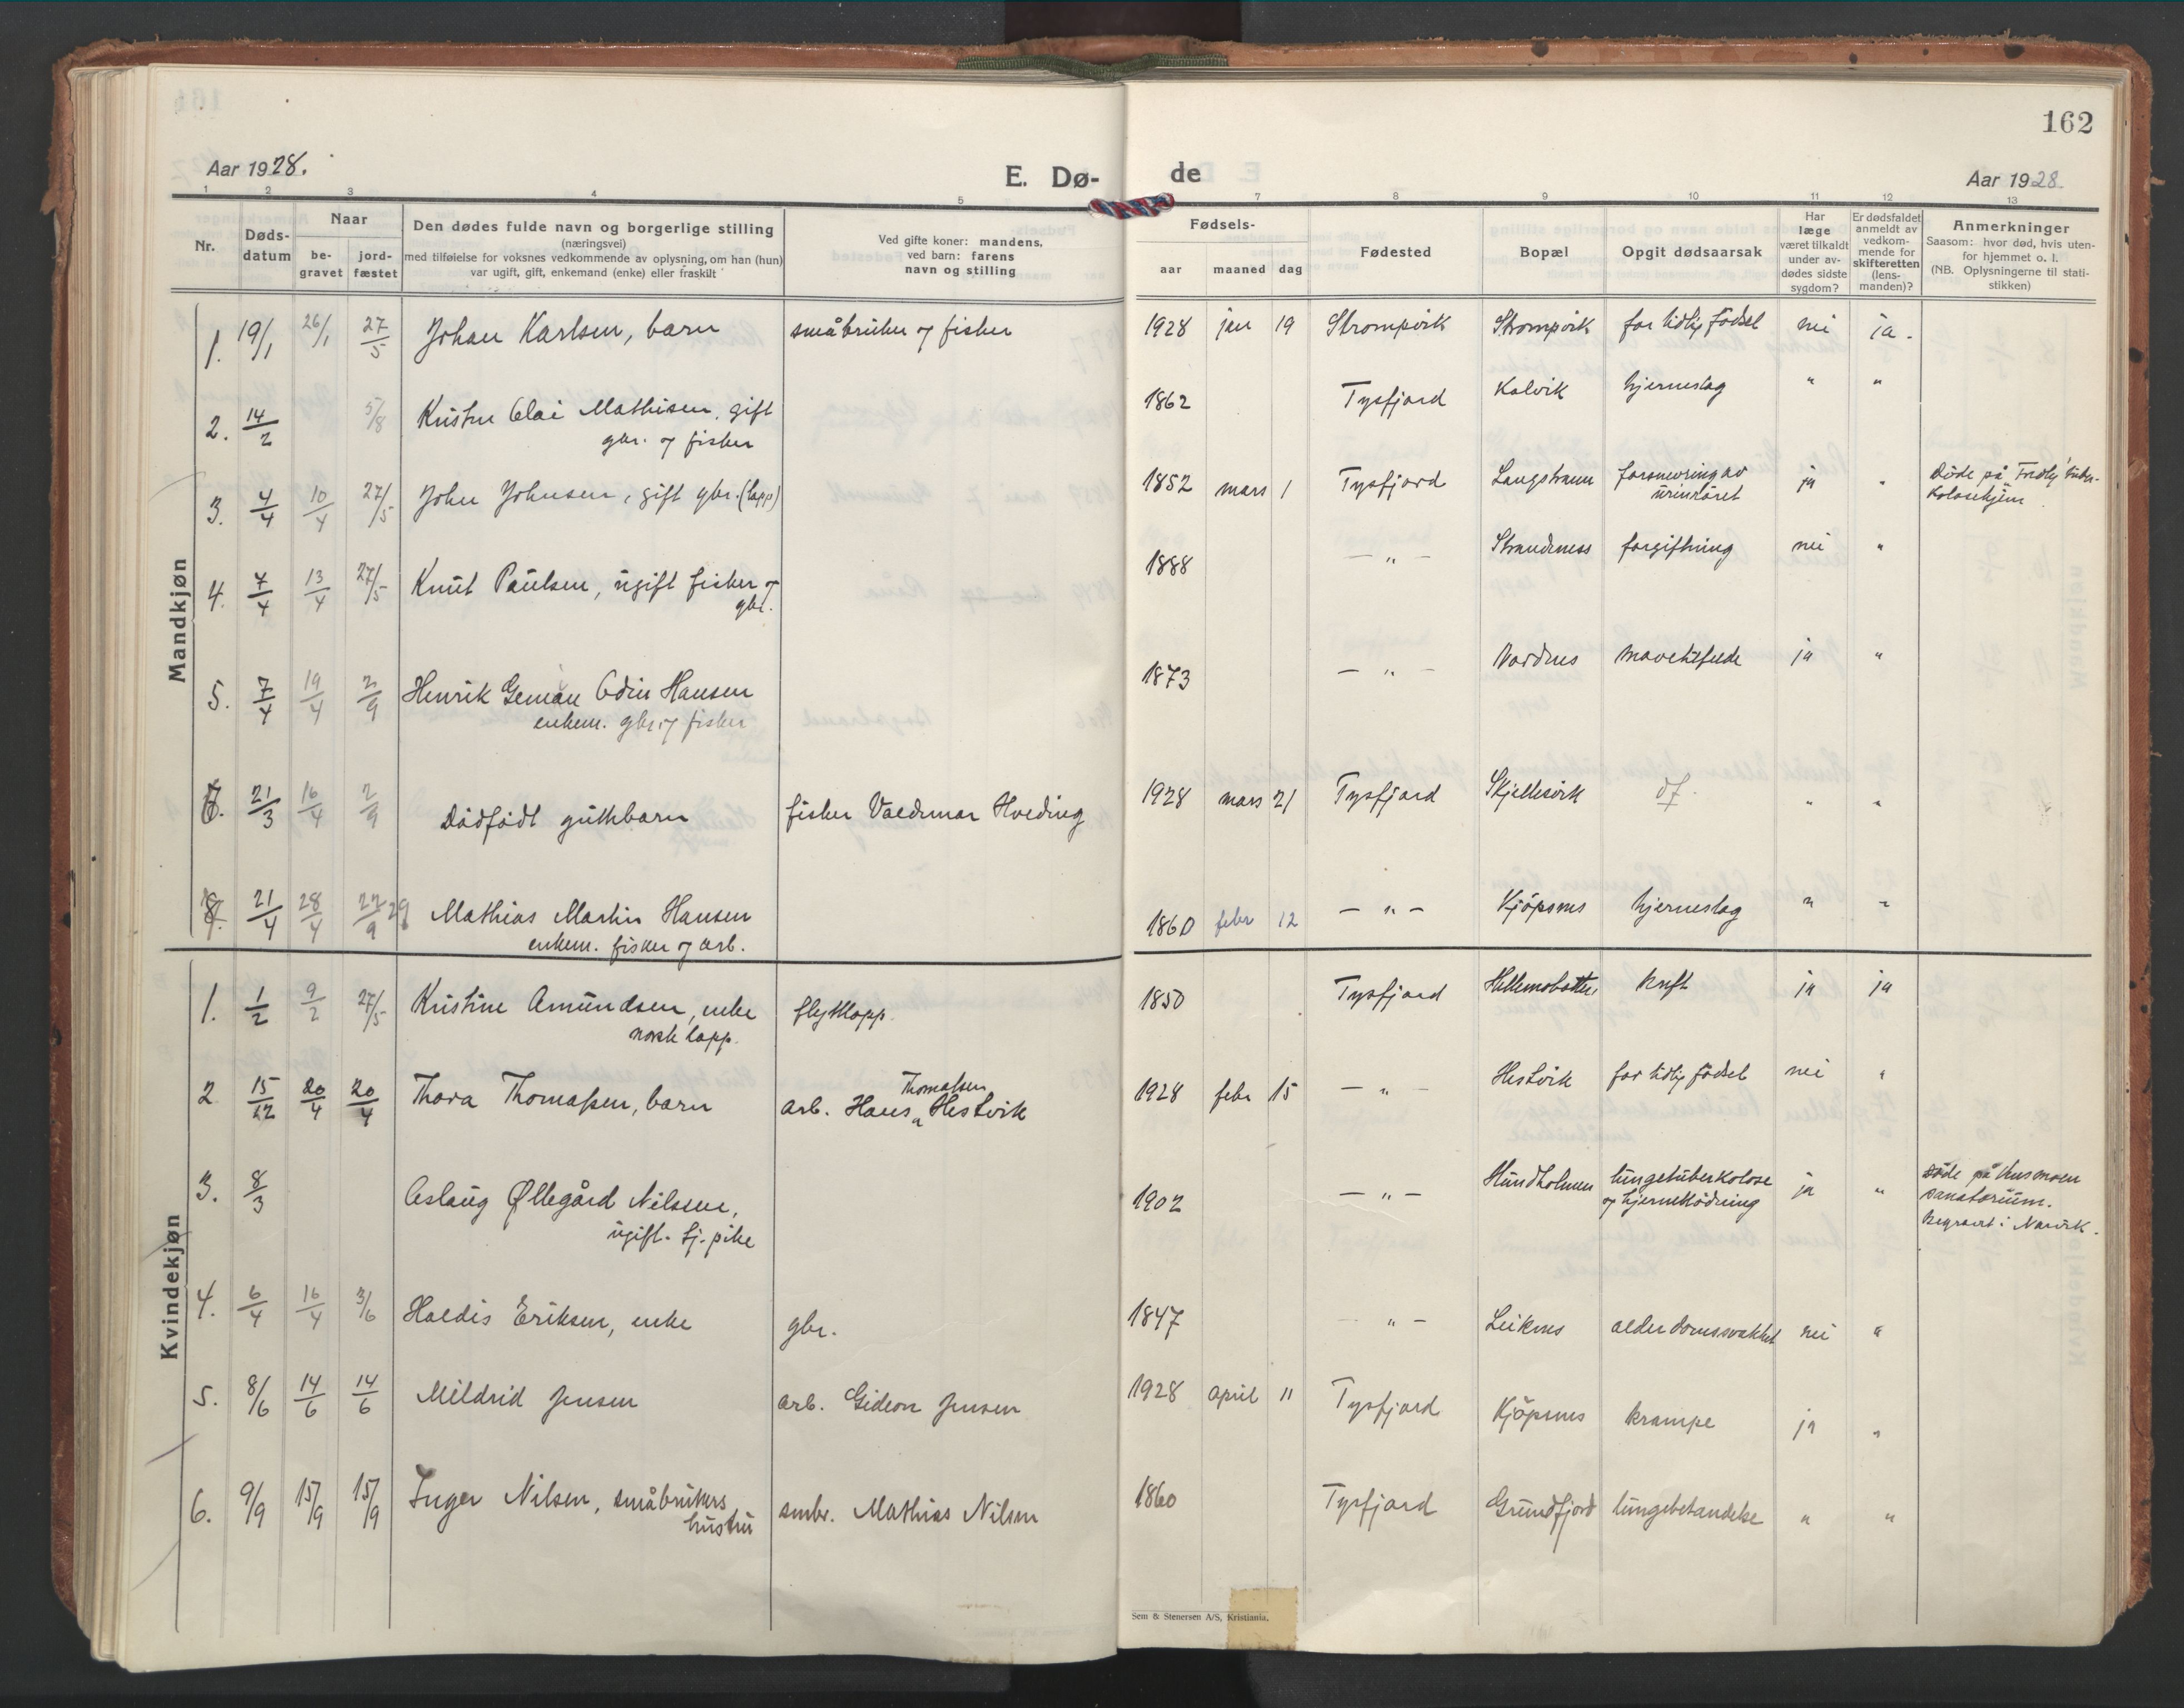 162
Aar 1928.
E. Dø-
de
Aar 1928
1 2 3 4 5 7 8 9 10 11 12 13
Nr.
Døds-
datum
Naar
be-
gravet
jord-
fæstet
Den dødes fulde navn og borgerlige stilling
(næringsvei)
med tilføielse for voksnes vedkommende av oplysning, om han (hun)
var ugift, gift, enkemand (enke) eller fraskilt
Ved gifte koner: mandens,
ved barn: farens
navn og stilling
Fødsels-
aar maaned dag
Fødested
Bopæl
Opgit dødsaarsak
Har
læge
været tilkaldt
under av-
dødes sidste
sygdom?
Er dødsfaldet
anmeldt av
vedkom-
mende for
skifteretten
(lens-
manden)?
Anmerkninger
Saasom: hvor død, hvis uten-
for hjemmet o. l.
(NB. Oplysningerne til stati-
stikken)
Mandkjøn
1. 19/1 26/1 27/5 Johan Karlsen, barn småbruker og fisker 1928 jan 19 Strompvik Strompvik for tidlig födsel nei ja.
2. 14/2 5/8 Kristen Olai Mathisen, gift 1862 Tysfjord Kalvik hjerneslag " "
gbr. og fisker
3. 4/4 10/4 27/5 John Johnsen, gift gbr. (lapp) 1852 mars 1 Tysfjord Langstrann forsnevring av ja " Döde på "Fredly" tuber-
urinröret kolosehjem
4. 7/4 13/4 27/5 Knut Paulsen, ugift fisker og 1888 — " — Strandness forgiftning nei "
gbr.
5. 7/4 19/4 2/9 Henrik Geman Odin Hansen 1873 — " — Nordnes mavetilfelde ja "
enkem. gbr. og fisker
6. 21/3 16/4 2/9 Dödfödt guttebarn fisker Valdemar Hveding 1928 mars 21 Tysfjord Skjellesvik df. " "
21/4 28/4 29 Mathias Martin Hansen 1860 febr 12 — " — Kjöpsnes hjerneslag " "
enkem. fisker og arb.
Kvindekjøn
1. 1/2 9/2 27/5 Kristine Amundsen, enke flyttlapp. 1850 Tysfjord Hellemobotten kreft ja ja
norsk lapp.
2 15/12 20/4 20/4 Thora Thomassen, barn arb. Hans Thomassen Hestvik 1928 febr 15 — " — Hestvik for tidlig födsel nei "
3. 8/3 Aslaug Øllegård Nilsen, 1902 — " — Hundholmen lungetuberkolose ja " Döde på Husmoen
ugift. tj. pike og hjerneblödning sanatorium.
Begravet i Narvik.
4. 6/4 16/4 3/6 Haldis Eriksen, enke gbr. 1847 — " — Leiknes alderdomssvakhet nei "
5. 8/6 14/6 14/6 Mildrid Jensen arb. Gideon Jensen 1928 april 11 Tysfjord Kjöpsnes krampe ja "
6. 9/9 15/9 15/9 Inger Nilsen, småbrukers smbr. Mathias Nilsen 1860 Tysfjord Grundfjord lungebetandelse " "
hustru
Sem & Stenersen A/S, Kristiania.